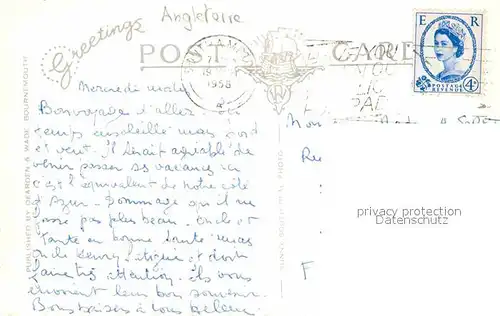 Angleterre
Greetings
POST CARD
E R
POSTAGE REVENUE
4D
1958
Mercredi matin
Bon voyage d'aller.
temps ensoleillé mais
et vent. Il serait agréable de
venir passer ses vacances ici
c'est l'équivalent de notre côte
d'Azur. Dommage qu'il ne
fasse pas plus beau. Oncle et
Tante en bonne santé mais
Oncle Henry fatigué et doit
faire très attention. Ils vous
envoient leur bon souvenir.
Bons baisers à tous
PUBLISHED BY DEARDEN & WADE, BOURNEMOUTH
Mon
Re
F
privacy protection
Datenschutz